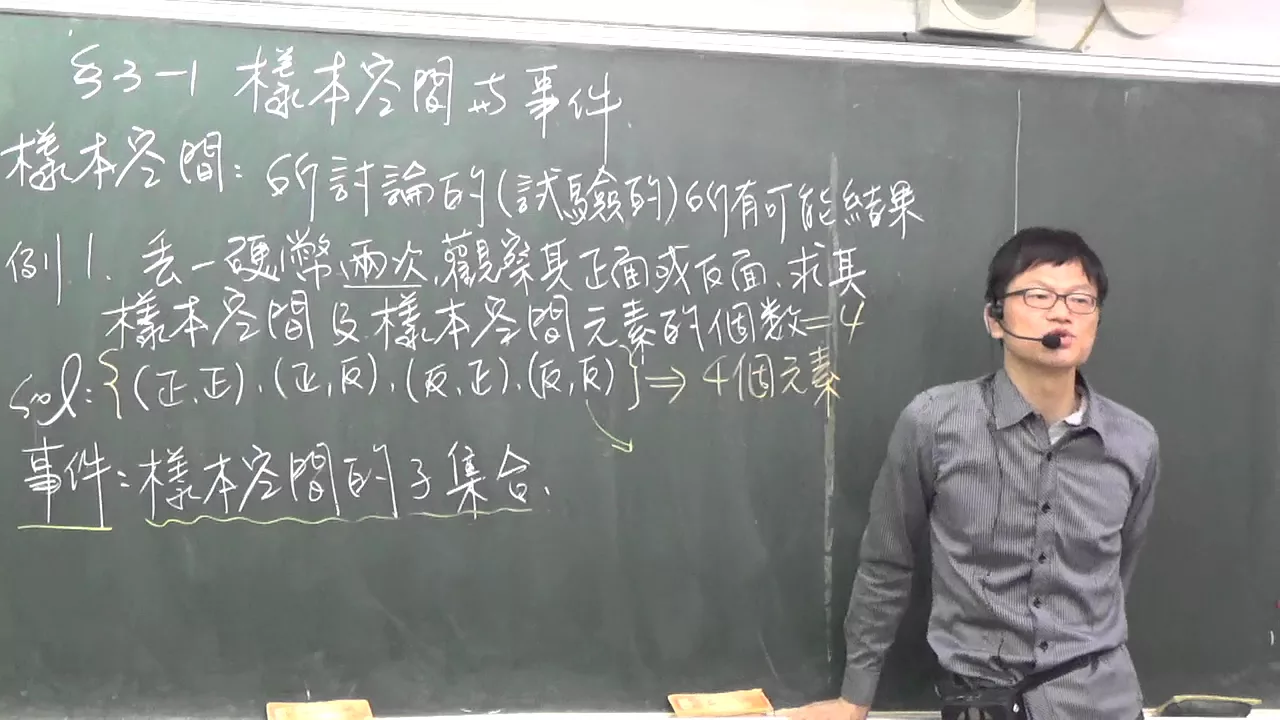 §3-1 樣本空間與事件.
樣本空間:所討論的(試驗的)所有可能結果
例1. 丟一硬幣兩次,觀察其正面或反面.求其
樣本空間及樣本空間元素的個數=4
sol:{(正,正),(正,反),(反,正),(反,反)}⇒4個元素
事件:樣本空間的子集合.